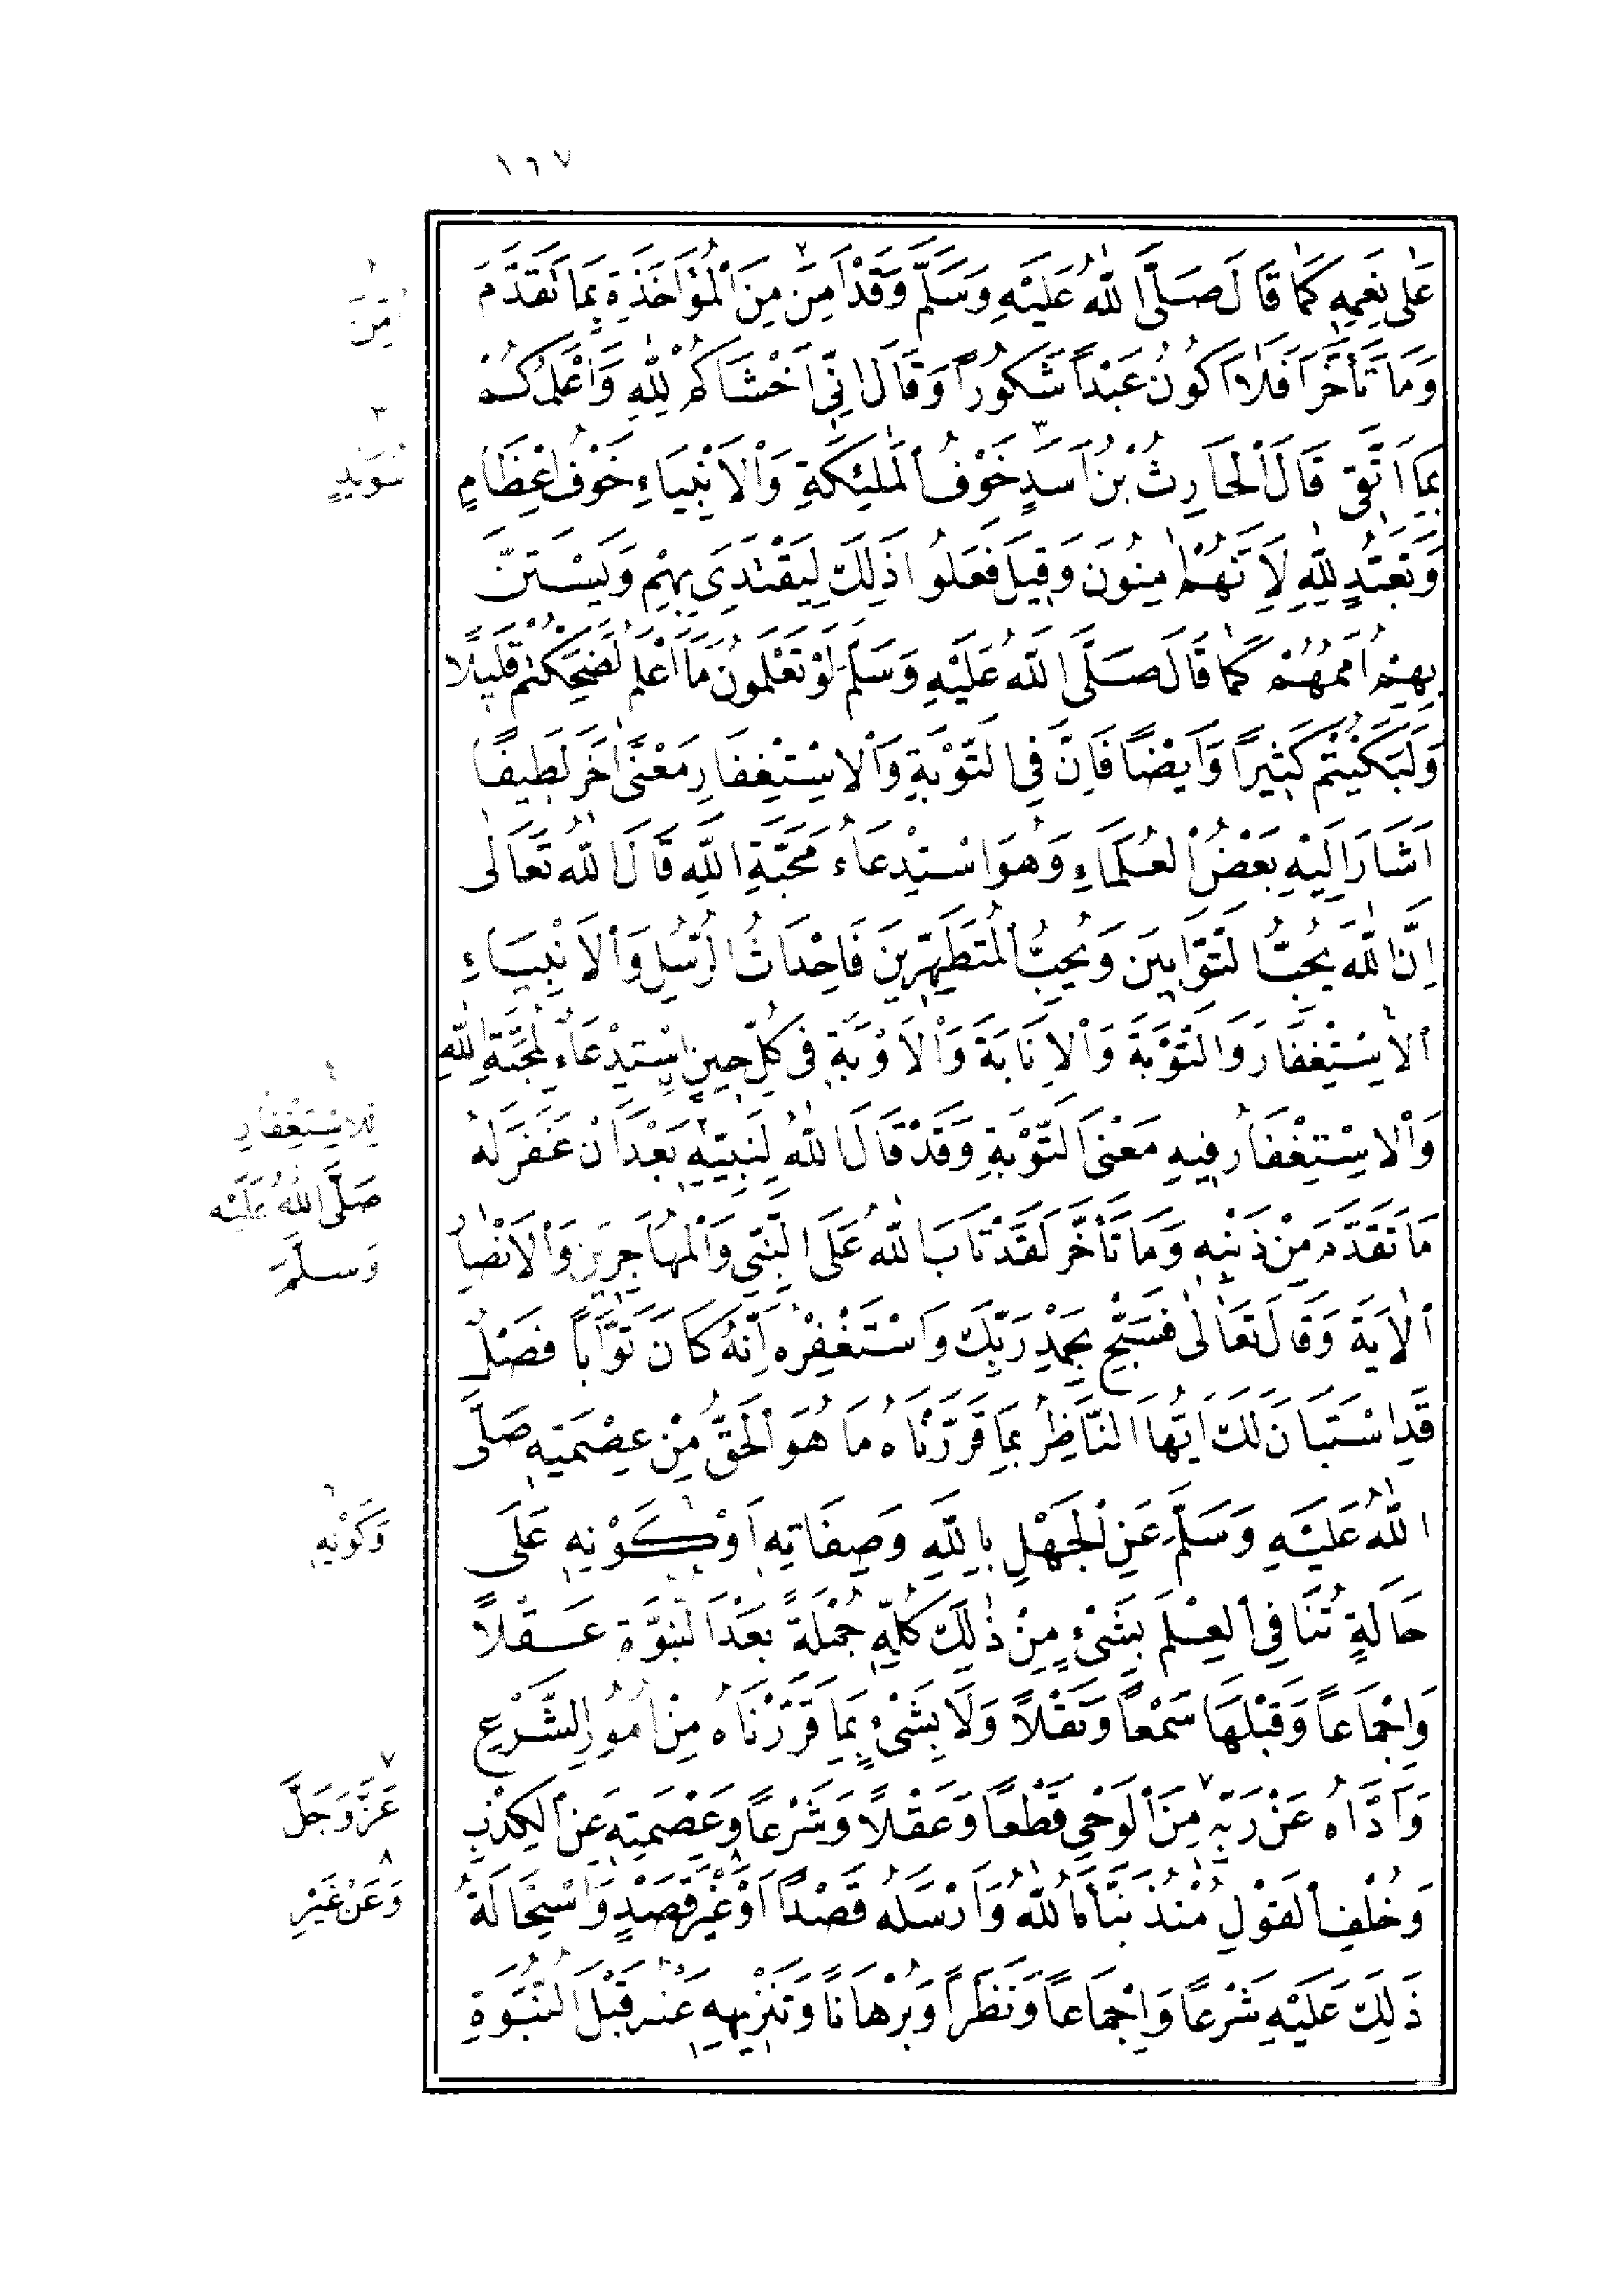 ١٦٧
عَلٰى نِعَمِهِ كَمَا قَالَ صَلَّى اللّٰهُ عَلَيْهِ وَسَلَّمَ وَقَدْ اَمِنَ مِنَ الْمُؤَاخَذَةِ بِمَا تَقَدَّمَ
وَمَا تَأَخَّرَ اَفَلَا اَكُونُ عَبْدًا شَكُورًا وَقَالَ اِنِّى اَخْشَاكُمْ لِلّٰهِ وَاَعْلَمُكُمْ
بِمَا اَتَّقِى قَالَ الْحَارِثُ بْنُ اَسَدٍ خَوْفُ الْمَلٰئِكَةِ وَالْاَنْبِيَاءِ خَوْفُ اِعْظَامٍ
وَتَعَبُّدٍ لِلّٰهِ لِاَنَّهُمْ اٰمِنُونَ وَقِيلَ فَعَلُوا ذَلِكَ لِيَقْتَدِىَ بِهِمْ وَيَسْتَنَّ
بِهِمْ اُمَمُهُمْ كَمَا قَالَ صَلَّى اللّٰهُ عَلَيْهِ وَسَلَّمَ لَوْ تَعْلَمُونَ مَا اَعْلَمُ لَضَحِكْتُمْ قَلِيلًا
وَلَبَكَيْتُمْ كَثِيرًا وَاَيْضًا فَاِنَّ فِى التَّوْبَةِ وَالْاِسْتِغْفَارِ مَعْنًى اٰخَرَ لَطِيفًا
اَشَارَ اِلَيْهِ بَعْضُ الْعُلَمَاءِ وَهُوَ اسْتِدْعَاءُ مَحَبَّةِ اللّٰهِ قَالَ اللّٰهُ تَعَالٰى
اِنَّ اللّٰهَ يُحِبُّ التَّوَّابِينَ وَيُحِبُّ الْمُتَطَهِّرِينَ فَاِحْدَاثُ الرُّسُلِ وَالْاَنْبِيَاءِ
الْاِسْتِغْفَارَ وَالتَّوْبَةَ وَالْاِنَابَةَ وَالْاَوْبَةَ فِى كُلِّ حِينٍ اسْتِدْعَاءٌ لِمَحَبَّةِ اللّٰهِ
وَالْاِسْتِغْفَارُ فِيهِ مَعْنَى التَّوْبَةِ وَقَدْ قَالَ اللّٰهُ لِنَبِيِّهِ بَعْدَ اَنْ غَفَرَ لَهُ
مَا تَقَدَّمَ مِنْ ذَنْبِهِ وَمَا تَأَخَّرَ لَقَدْ تَابَ اللّٰهُ عَلَى النَّبِىِّ وَالْمُهَاجِرِينَ وَالْاَنْصَارِ
الْاٰيَةَ وَقَالَ تَعَالٰى فَسَبِّحْ بِحَمْدِ رَبِّكَ وَاسْتَغْفِرْهُ اِنَّهُ كَانَ تَوَّابًا فَصْلٌ
قَدِ اسْتَبَانَ لَكَ اَيُّهَا النَّاظِرُ بِمَا قَرَّرْنَاهُ مَا هُوَ الْحَقُّ مِنْ عِصْمَتِهِ صَلَّى
اللّٰهُ عَلَيْهِ وَسَلَّمَ عَنِ الْجَهْلِ بِاللّٰهِ وَصِفَاتِهِ اَوْ كَوْنِهِ عَلَى
حَالَةٍ تُنَافِى الْعِلْمَ بِشَىْءٍ مِنْ ذٰلِكَ كُلِّهِ جُمْلَةً بَعْدَ النُّبُوَّةِ عَقْلًا
وَاِجْمَاعًا وَقَبْلَهَا سَمْعًا وَنَقْلًا وَلَا بِشَىْءٍ بِمَا قَرَّرْنَاهُ مِنْ اُمُورِ الشَّرْعِ
وَاَدَّاهُ عَنْ رَبِّهِ مِنَ الْوَحْىِ قَطْعًا وَعَقْلًا وَشَرْعًا وَعِصْمَتِهِ عَنِ الْكِذْبِ
وَخُلْفِ الْقَوْلِ مُنْذُ نَبَّأَهُ اللّٰهُ وَاَرْسَلَهُ قَصْدًا اَوْ غَيْرَ قَصْدٍ وَاسْتِحَالَةُ
ذَلِكَ عَلَيْهِ شَرْعًا وَاِجْمَاعًا وَنَظَرًا وَبُرْهَانًا وَتَنْزِيهِهِ عَنْهُ قَبْلَ النُّبُوَّةِ
٢
اُمِّنَ
٣
سُوَيْدٍ
٤
لِلِاسْتِغْفَارِ
صَلَّى اللّٰهُ عَلَيْهِ
وَسَلَّمَ
٦
وَكَوْنِهِ
٧
عَزَّ وَجَلَّ
٨
وَعَنْ غَيْرِ